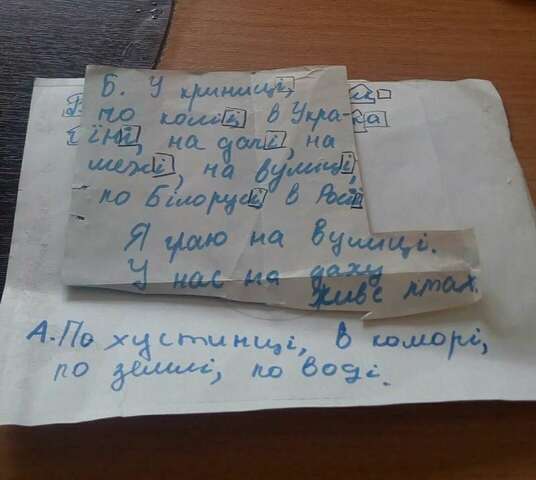 Б. У криниці,
по коліі в Укра-
їні, на дачі, на
межі, на вулиці,
по Білорусі в Росії
Я граю на вулиці.
У нас на даху
живе птах.
А. По хустинці, в коморі,
по землі, по воді.